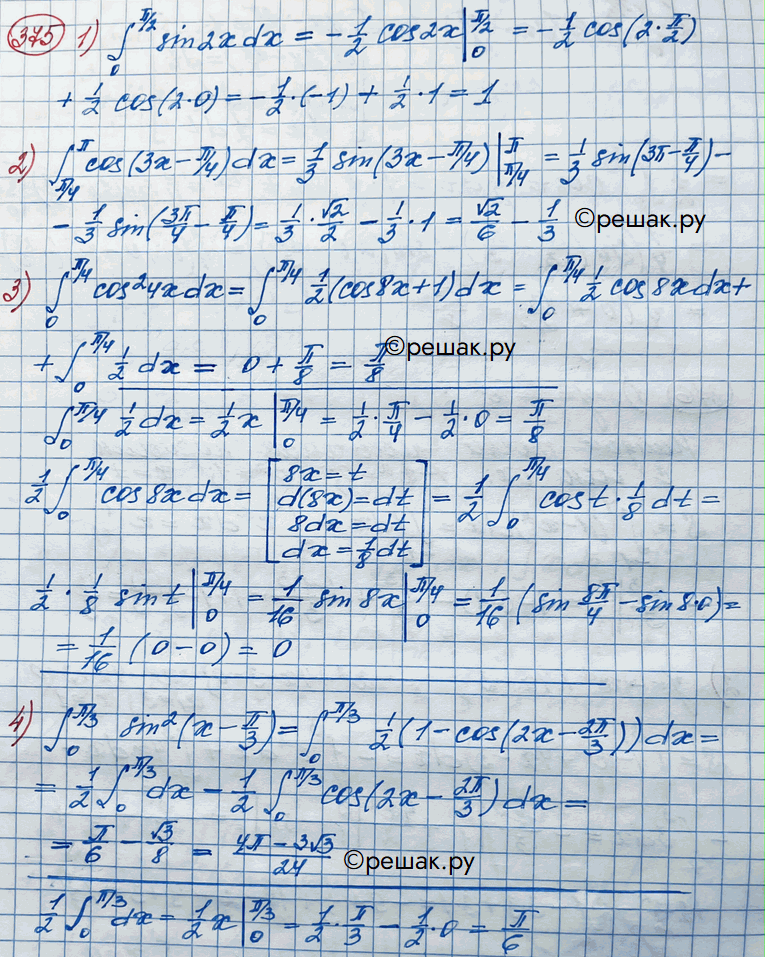 375 1) ∫₀^{π/2} sin2x dx = -1/2 cos2x |₀^{π/2} = -1/2 cos(2·π/2)
+ 1/2 cos(2·0) = -1/2·(-1) + 1/2·1 = 1
2) ∫_{π/4}^{π} cos(3x - π/4)dx = 1/3 sin(3x - π/4) |_{π/4}^{π} = 1/3 sin(3π - π/4) -
- 1/3 sin(3π/4 - π/4) = 1/3 · √2/2 - 1/3·1 = √2/6 - 1/3 ©решак.ру
3) ∫₀^{π/4} cos²4x dx = ∫₀^{π/4} 1/2(cos8x+1)dx = ∫₀^{π/4} 1/2 cos8x dx +
+ ∫₀^{π/4} 1/2 dx = 0 + π/8 = π/8 ©решак.ру
∫₀^{π/4} 1/2 dx = 1/2 x |₀^{π/4} = 1/2 · π/4 - 1/2·0 = π/8
1/2 ∫₀^{π/4} cos8x dx = [8x = t
d(8x) = dt
8dx = dt
dx = 1/8 dt] = 1/2 ∫₀^{π/4} cos t · 1/8 dt =
1/2 · 1/8 sin t |₀^{π/4} = 1/16 sin 8x |₀^{π/4} = 1/16 (sin 8π/4 - sin 8·0) =
= 1/16 (0 - 0) = 0
4) ∫₀^{π/3} sin²(x - π/3) = ∫₀^{π/3} 1/2(1 - cos(2x - 2π/3))dx =
= 1/2 ∫₀^{π/3} dx - 1/2 ∫₀^{π/3} cos(2x - 2π/3)dx =
= π/6 - √3/8 = (4π - 3√3)/24 ©решак.ру
1/2 ∫₀^{π/3} dx = 1/2 x |₀^{π/3} = 1/2 · π/3 - 1/2·0 = π/6